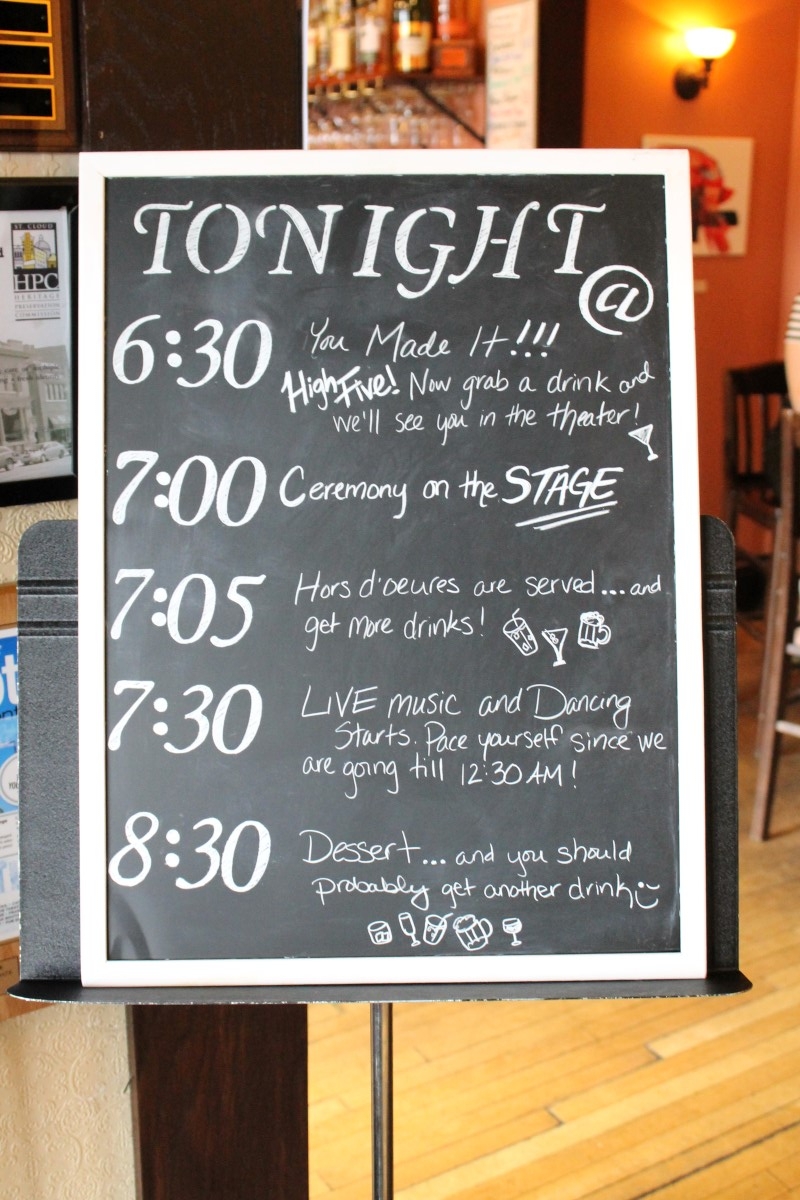 TONIGHT
@
6:30 You Made It!!!
High Five! Now grab a drink and
we'll see you in the theater!
7:00 Ceremony on the STAGE
7:05 Hors d'oeures are served...and
get more drinks!
7:30 LIVE music and Dancing
Starts. Pace yourself since we
are going till 12:30 AM!
8:30 Dessert... and you should
probably get another drink
ST. CLOUD
HPC
HERITAGE
PRESERVATION
COMMISSION